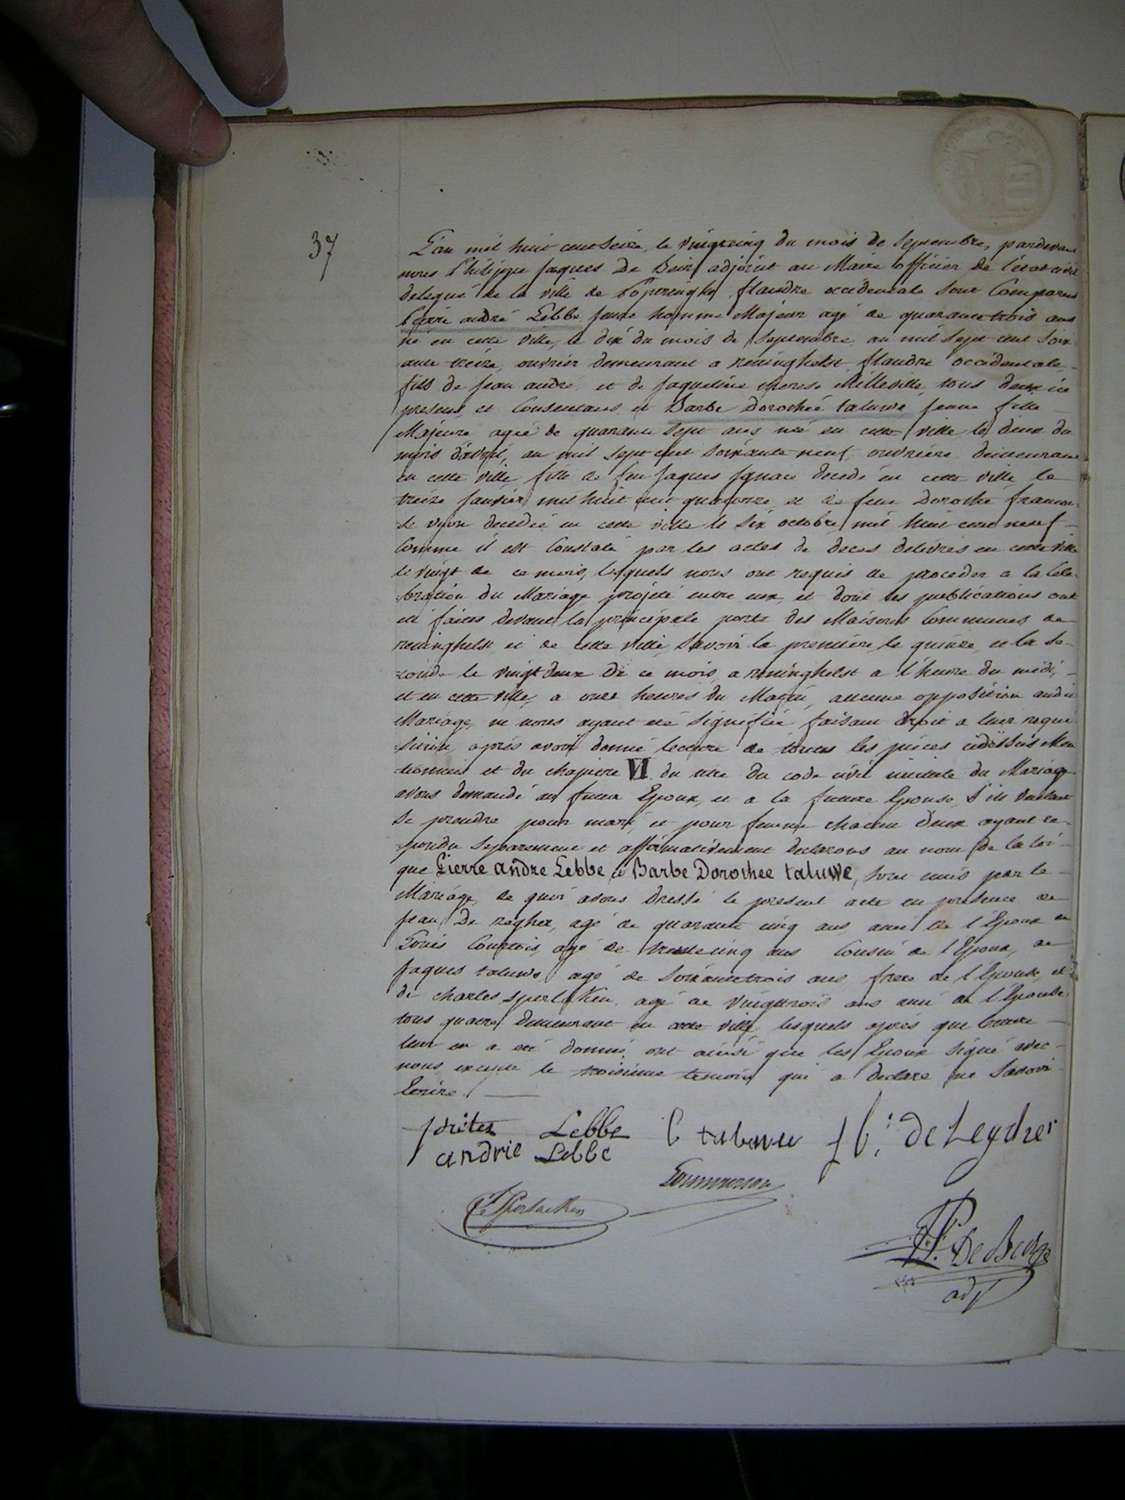 37
L'an mil huit cent Seize, le vingtcinq du mois de Septembre, pardevant
nous Philippe Jaques De Beir adjoint au Maire officier de l'état civil
delegué de la ville de Poperinghe flandre occidentale Sont Comparus
Pierre andré Lebbe jeune homme Majeur agé de quarantetrois ans
né en cette ville, le dix du mois de Septembre au mil Sept cent Soix
ante treize, ouvrier demeurant a reninghelst flandre occidentale
fils de jean andre et de jaqueline therese Milleville tous deux ici
presens et Consentans et Barbe Dorothée taluwe jeune fille
Majeure agée de quarante Sept ans née en cette ville le deux du
mois d'avril, au mil Sept cent Soixante neuf ouvriere demeurant
en cette ville fille de feu jaques Ignace decedé en cette ville le
treize janvier mil huit cent quatorze, et de feue Dorothe
decedée en cette ville le Six octobre mil huit cent neuf
Comme il est Constaté par les actes de deces delivrés en cette ville
le vingt de ce mois, lesquels nous ont requis de proceder a la Cele-
bration du Mariage projeté entre eux, et dont les publications ont
eté faites devant la principale porte des Maisons Communes de
reninghelst et de cette ville, Savoir la premiere le quinze, et la Se-
conde le vingt deux de ce mois, a reninghelst a l'heure du midi,
et en cette ville, a onze heures du Matin, aucune opposition audit
Mariage ne nous ayant eté Signifiée faisant droit a leur requi-
sition, après avoir donné lecture de toutes les pièces cidessus Men
tionnées et du chapitre VI du titre du code civil intitulé du Mariage
avons demandé au futur Epoux, et a la future Epouse S'ils veulent
Se prendre pour mari et pour femme chacun d'eux ayant re-
pondu Separement et affirmativement declarons au nom de la loi
que Pierre andre Lebbe et Barbe Dorothee taluwe, Sont unis par le
Mariage, de quoi avons dressé le present acte en presence de
jean De agé de quarante cinq ans ami de l'Epoux de
Louis Courtois agé de trente cinq ans Cousin de l'Epoux, de
jaques taluwe agé de Soixantetrois ans frere de l'Epouse et
de charles agé de vingttrois ans ami de l'Epouse,
tous quatre demeurant en cette ville lesquels après que lecture
leur en a eté donné, ont ainsi que les Epoux Signé avec
nous excepté le troisième temoin qui a declaré ne Savoir
Ecrire.
Lebbe
andrie Lebbe
De Beir
adj